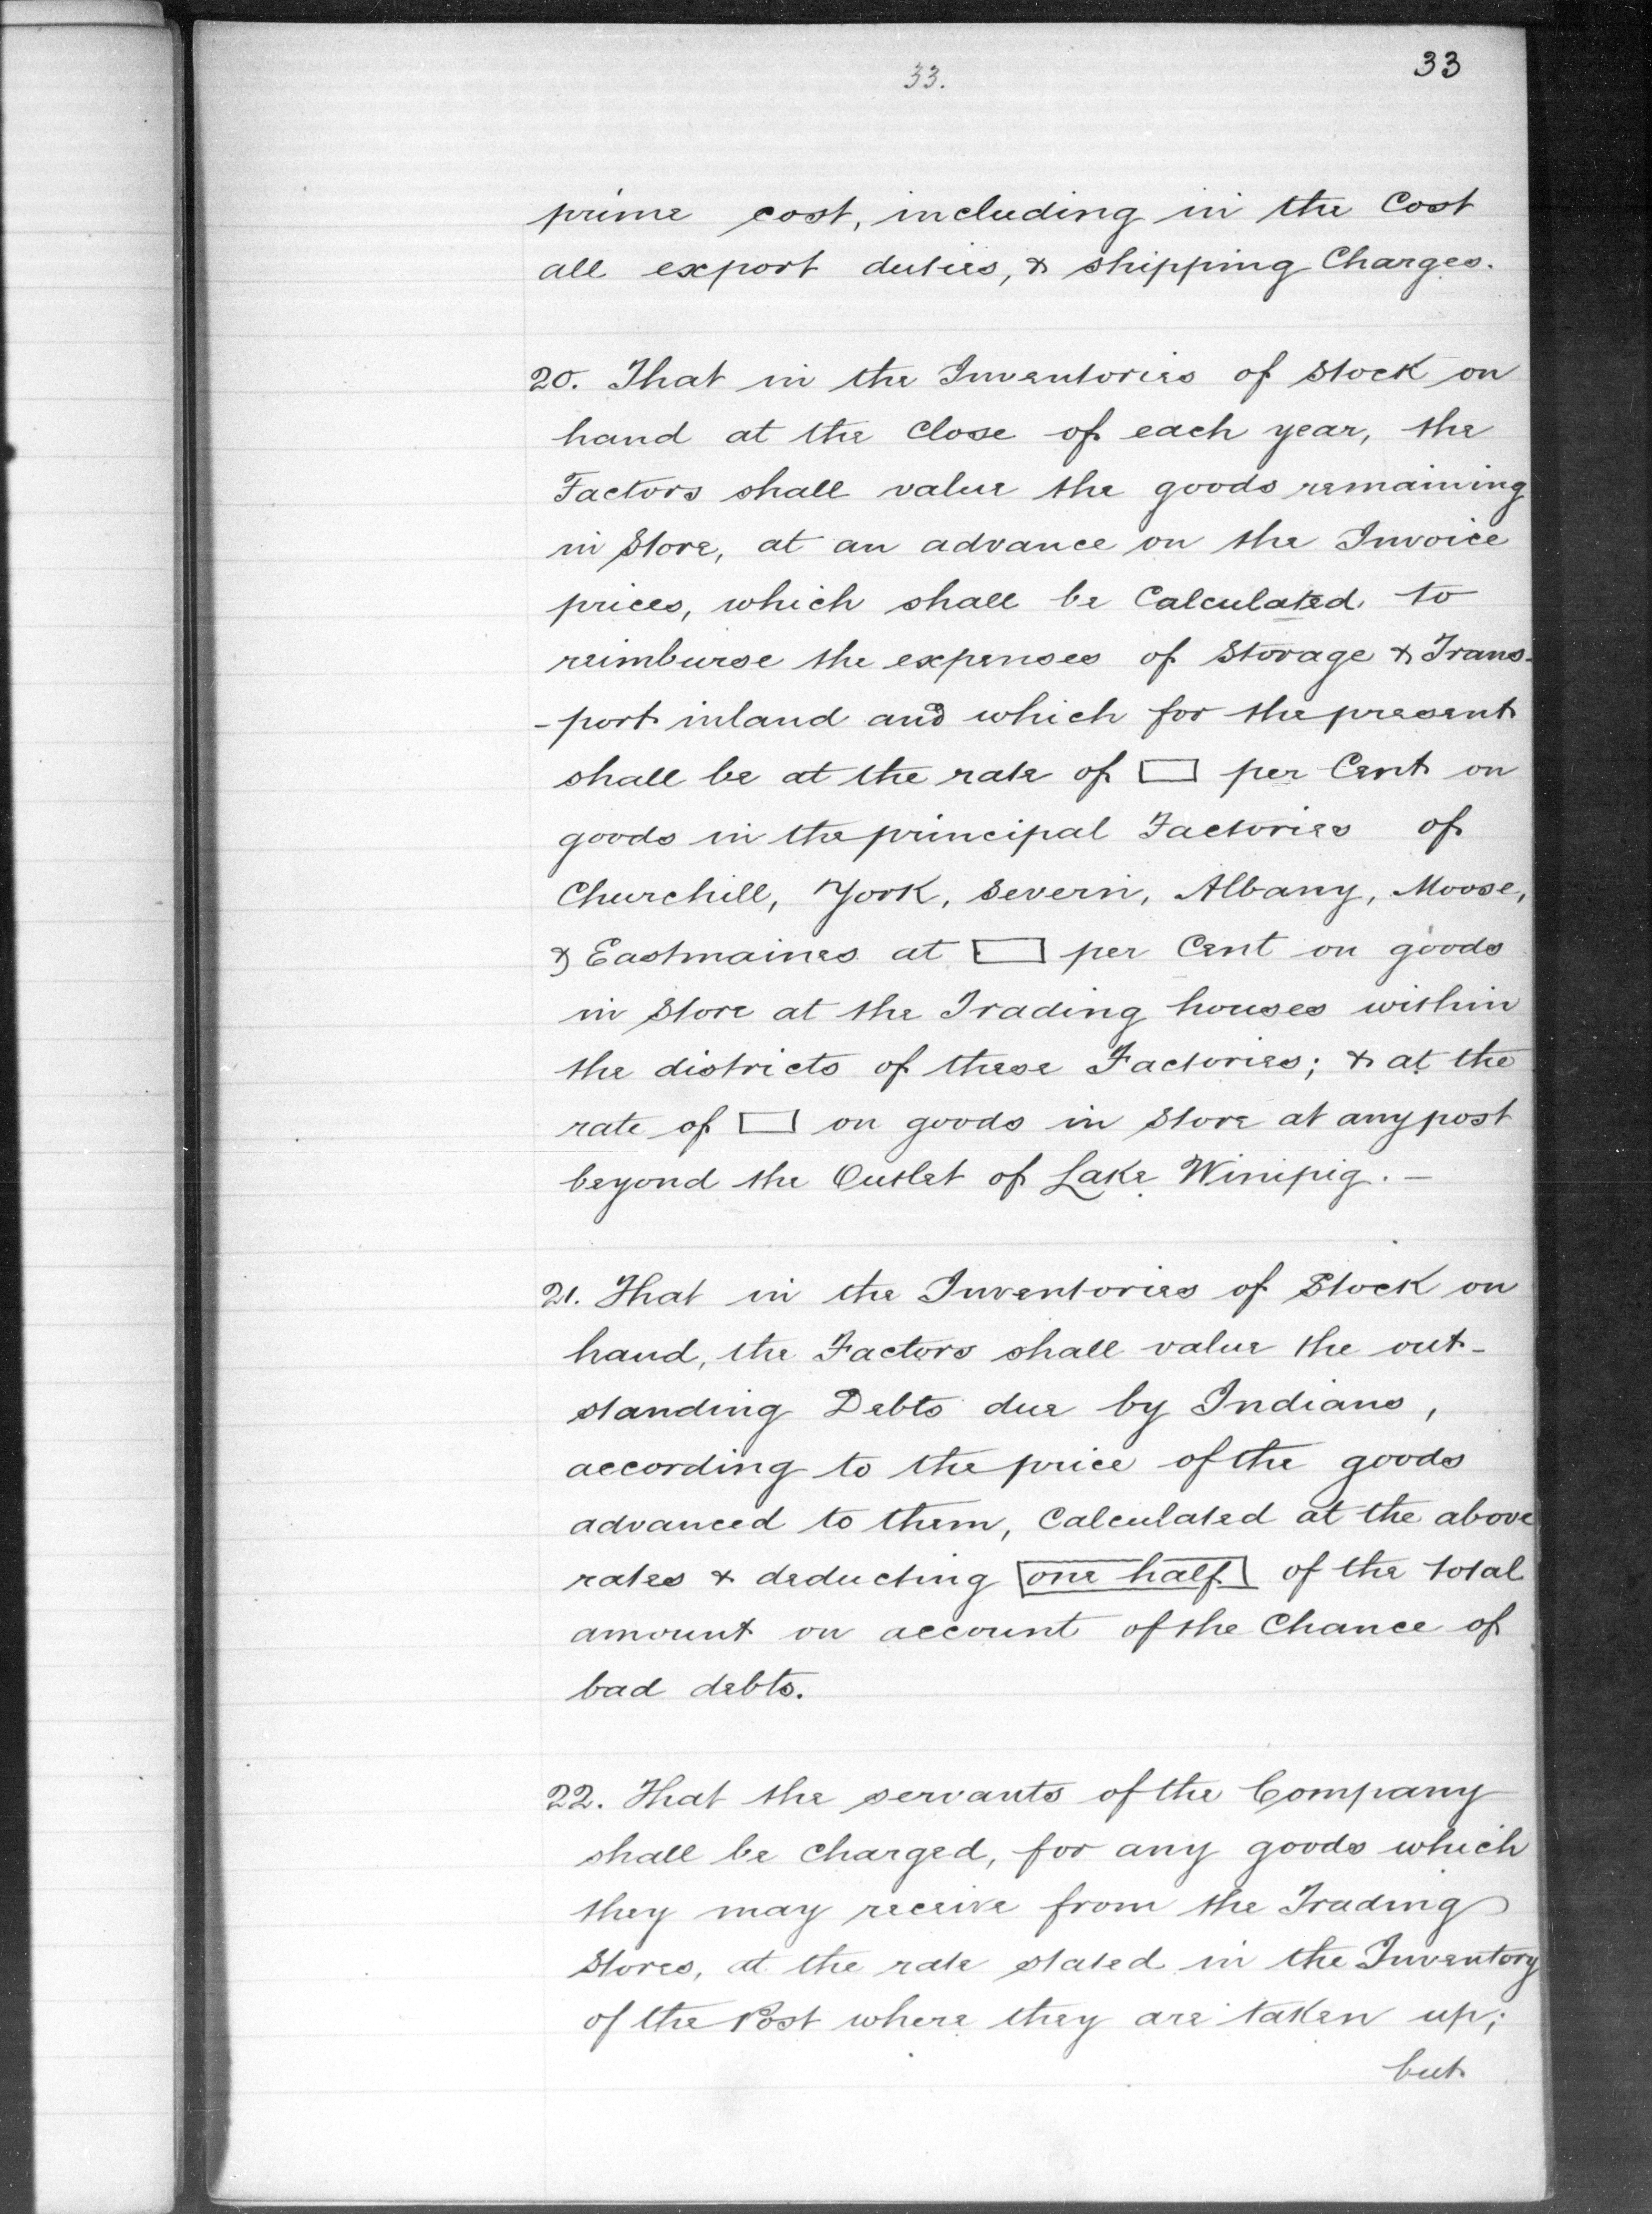 33.
33
prime cost, including in the Cost
all export duties, & shipping Charges.
20. That in the Inventories of Stock on
hand at the Close of each year, the
Factors shall value the goods remaining
in Store, at an advance on the Invoice
prices, which shall be Calculated to
reimburse the expenses of Storage & Trans-
-port inland and which for the present
shall be at the rate of [ ] per Cent on
goods in the principal Factories of
Churchill, York, Severn, Albany, Moose,
& Eastmaines at [ ] per Cent on goods
in Store at the Trading houses within
the districts of these Factories; & at the
rate of [ ] on goods in Store at any post
beyond the Outlet of Lake Winipig. —
21. That in the Inventories of Stock on
hand, the Factors shall value the out-
standing Debts due by Indians,
according to the price of the goods
advanced to them, Calculated at the above
rates & deducting [one half] of the total
amount on account of the Chance of
bad debts.
22. That the servants of the Company
shall be Charged, for any goods which
they may receive from the Trading
Stores, at the rate stated in the Inventory
of the Post where they are taken up;
but